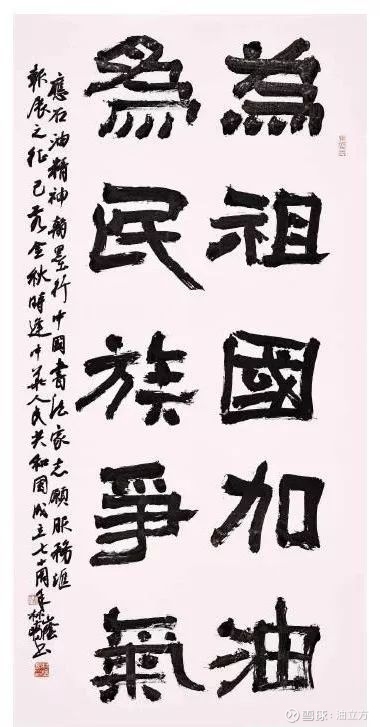 為祖國加油
為民族爭氣
應石油精神翰墨行中国書法家志願服務匯
報展之征己亥金秋時逢中華人民共和国成立七十周年
雪球：油立方